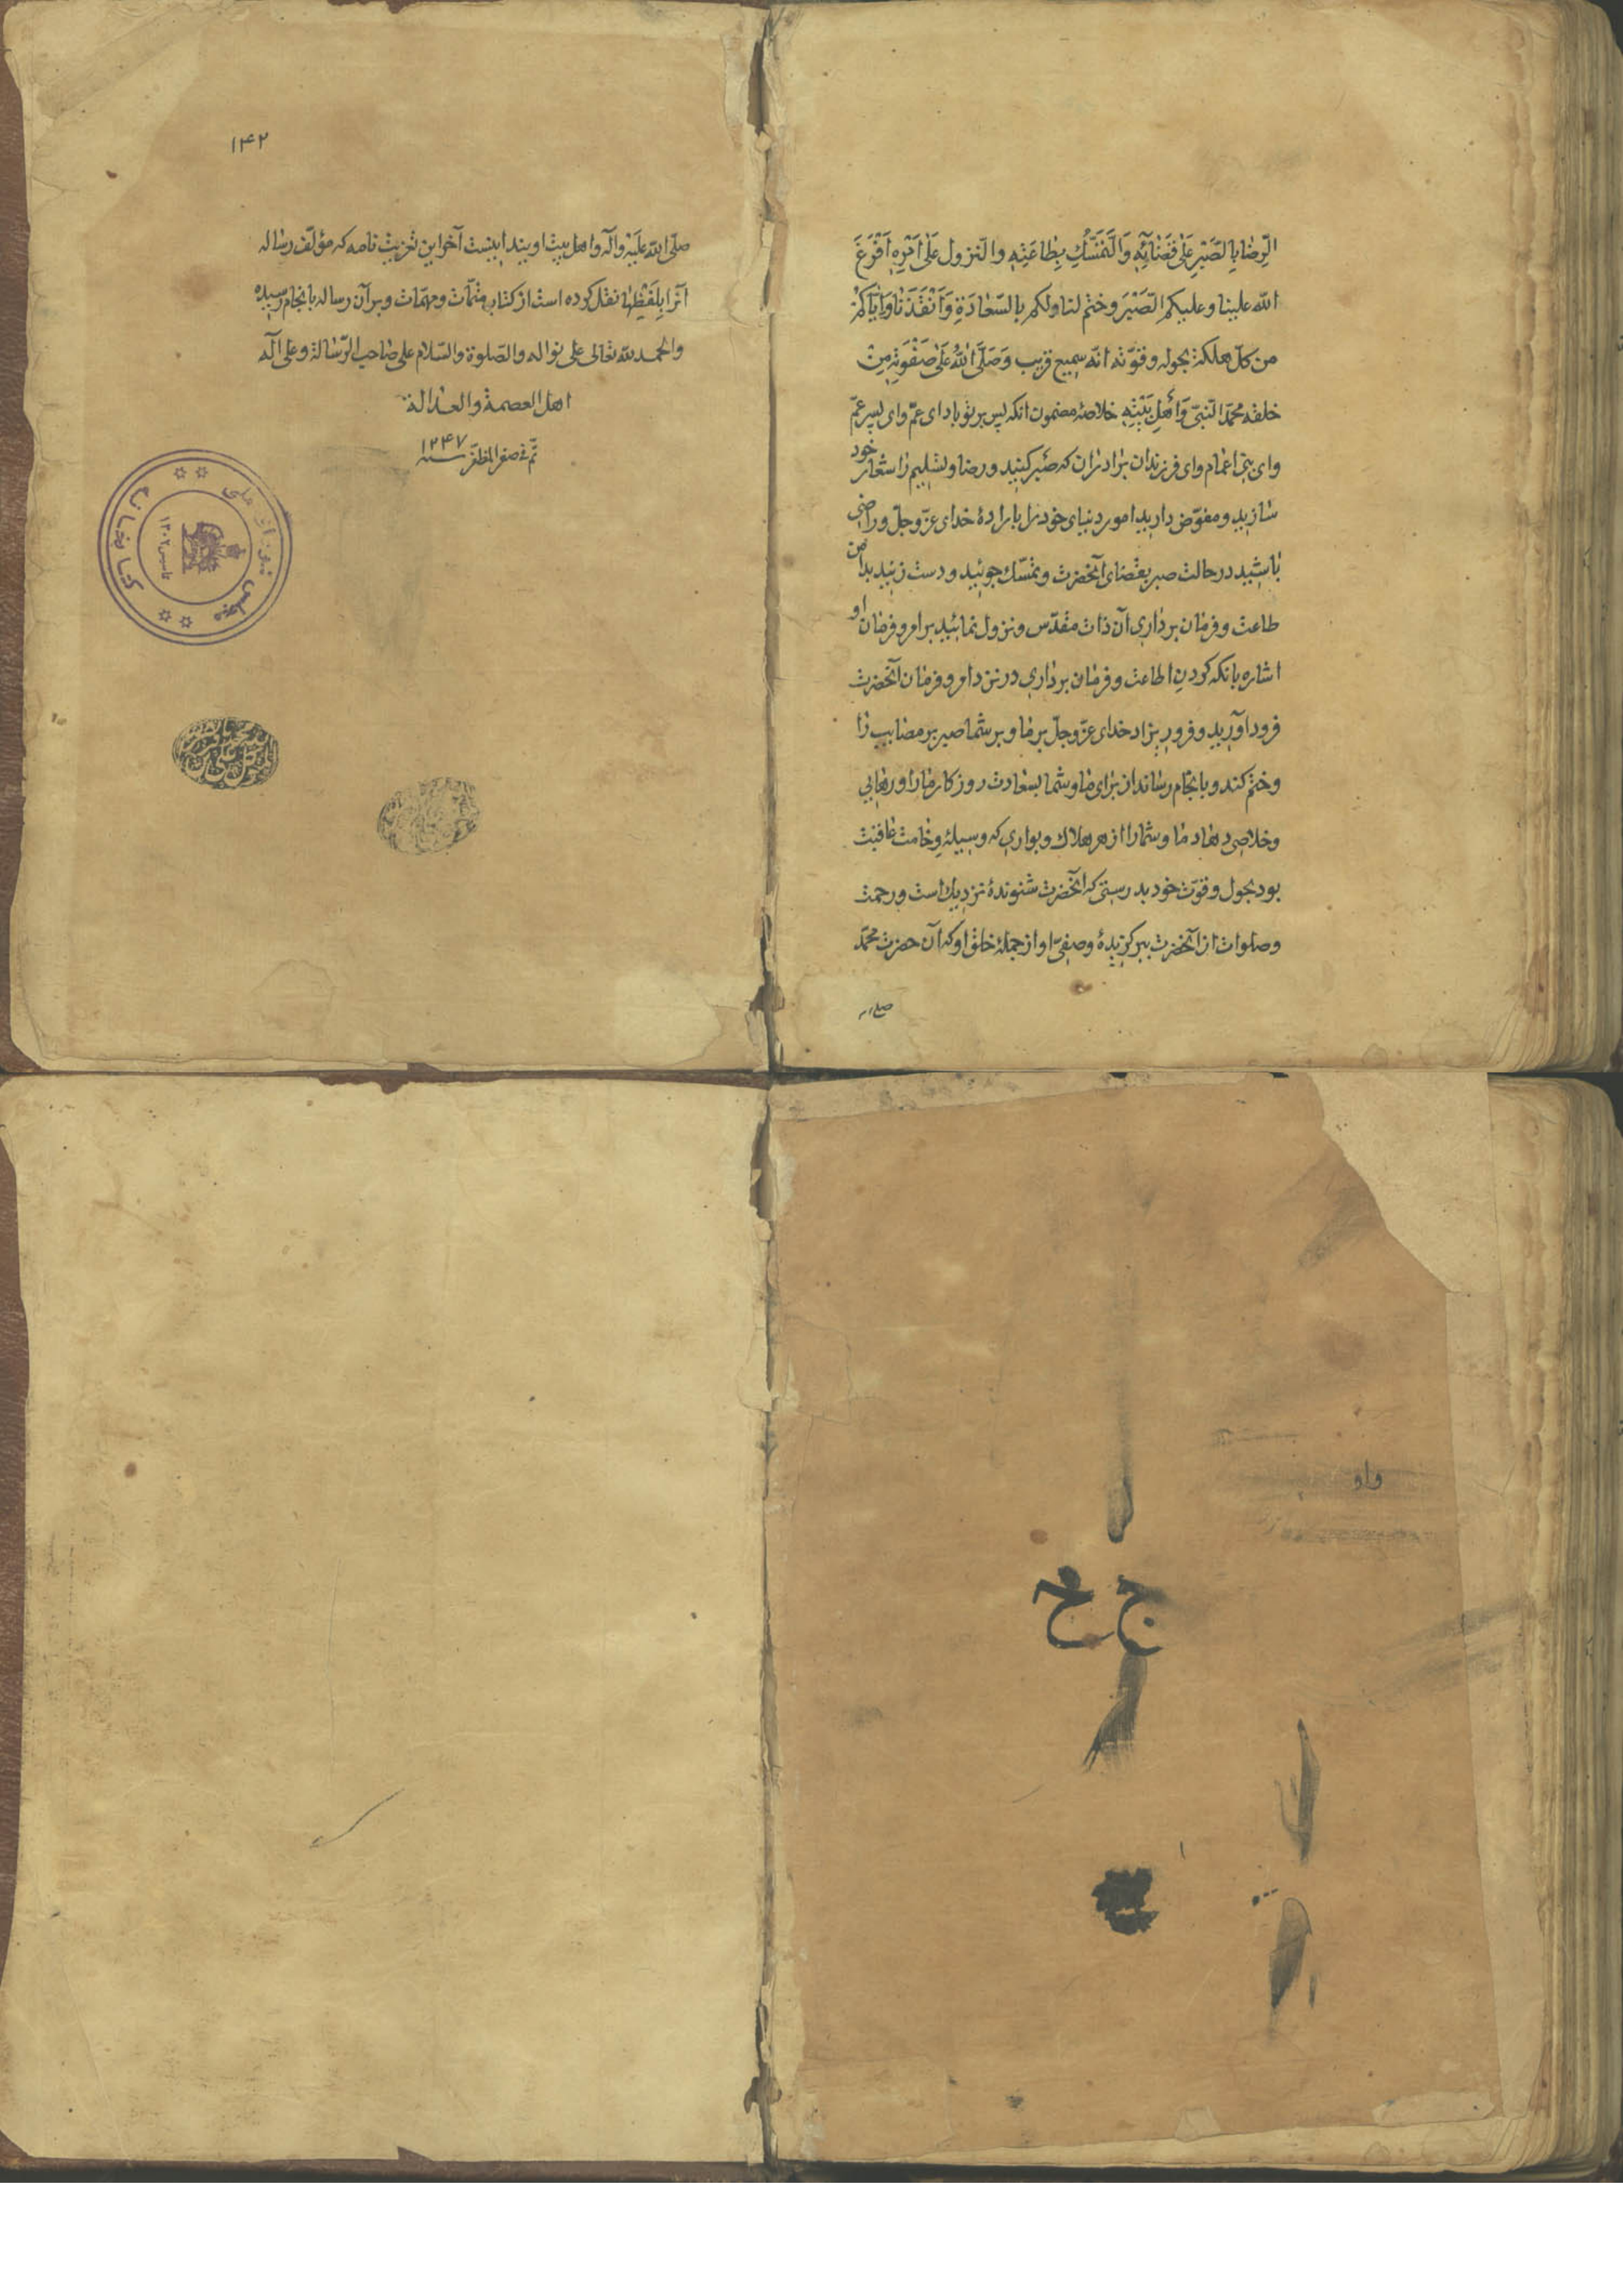 الرّضا بالصّبر علی قضائِهِ وَالتَّمَسُّكِ بِطاعَتِهِ والنّزول عَلی اَمْرِهِ اَفْرَغَ
الله علینا وعلیکم الصَّبْرَ وختم لنا ولکم بالسّعادَةِ وَاَنْقَذَنا وَاِیّاکُمْ
من کلّ هلکة بحوله وقوّته انّه سمیع قریب وَصَلَّی اللهُ عَلی صَفْوَتِهِ مِنْ
خلقه محمّد النّبیّ وَاَهْلِ بَیْتِهِ خلاصهٔ مضمون انکه پس بر تو باد ای عمّ وای پسر عمّ
وای بنی اعمام وای فرزندان برادران که صبر کنید ورضا وتسلیم را شعار خود
سازید ومفوّض دارید امور دنیای خود را بارادهٔ خدای عزّ وجلّ وراضی
باشید در حالت صبر بقضای آنحضرت وتمسّك جوئید ودست زنید بدامن
طاعت وفرمان برداری آن ذات مقدّس ونزول نمائید بر امر وفرمان او
اشاره بانکه کردن اطاعت وفرمان برداری در نزد امر وفرمان آنحضرت
فرود آورید وفرو ریزاد خدای عزّ وجلّ بر ما وبر شما صبر بر مصایب را
وختم کند وبانجام رساند از برای ما وشما بسعادت روزکار ما را ورهایی
وخلاصی دهاد ما وشما را از هر هلاك وبواری که وسیلهٔ وخامت عاقبت
بود بحول وقوّت خود بدرستی که انحضرت شنوندهٔ نزدیك است ورحمت
وصلوات از آنحضرت ببر کزیدهٔ وصفیّ او از جملهٔ خلق او که آن حضرت محمّد
صلی
۱۴۲
صلّی الله علیه وآله واهل بیت اویند اینست آخر این تعزیت نامه که مؤلّف رساله
آنرا بِلَفْظِها نقل کرده است از کتاب متمّات ومهمّات وبر آن رساله بانجام رسیده
والحمد لله تعالی علی نواله والصّلوة والسّلام علی صاحب الرّسالة وعلی آله
اهل العصمة والعدالة
تمّ فی صفر المظفّر سنه ۱۲۴۷
کتابخانه
مجلس شورای ملی
تاسیس ۱۳۰۲
واو
ج ح